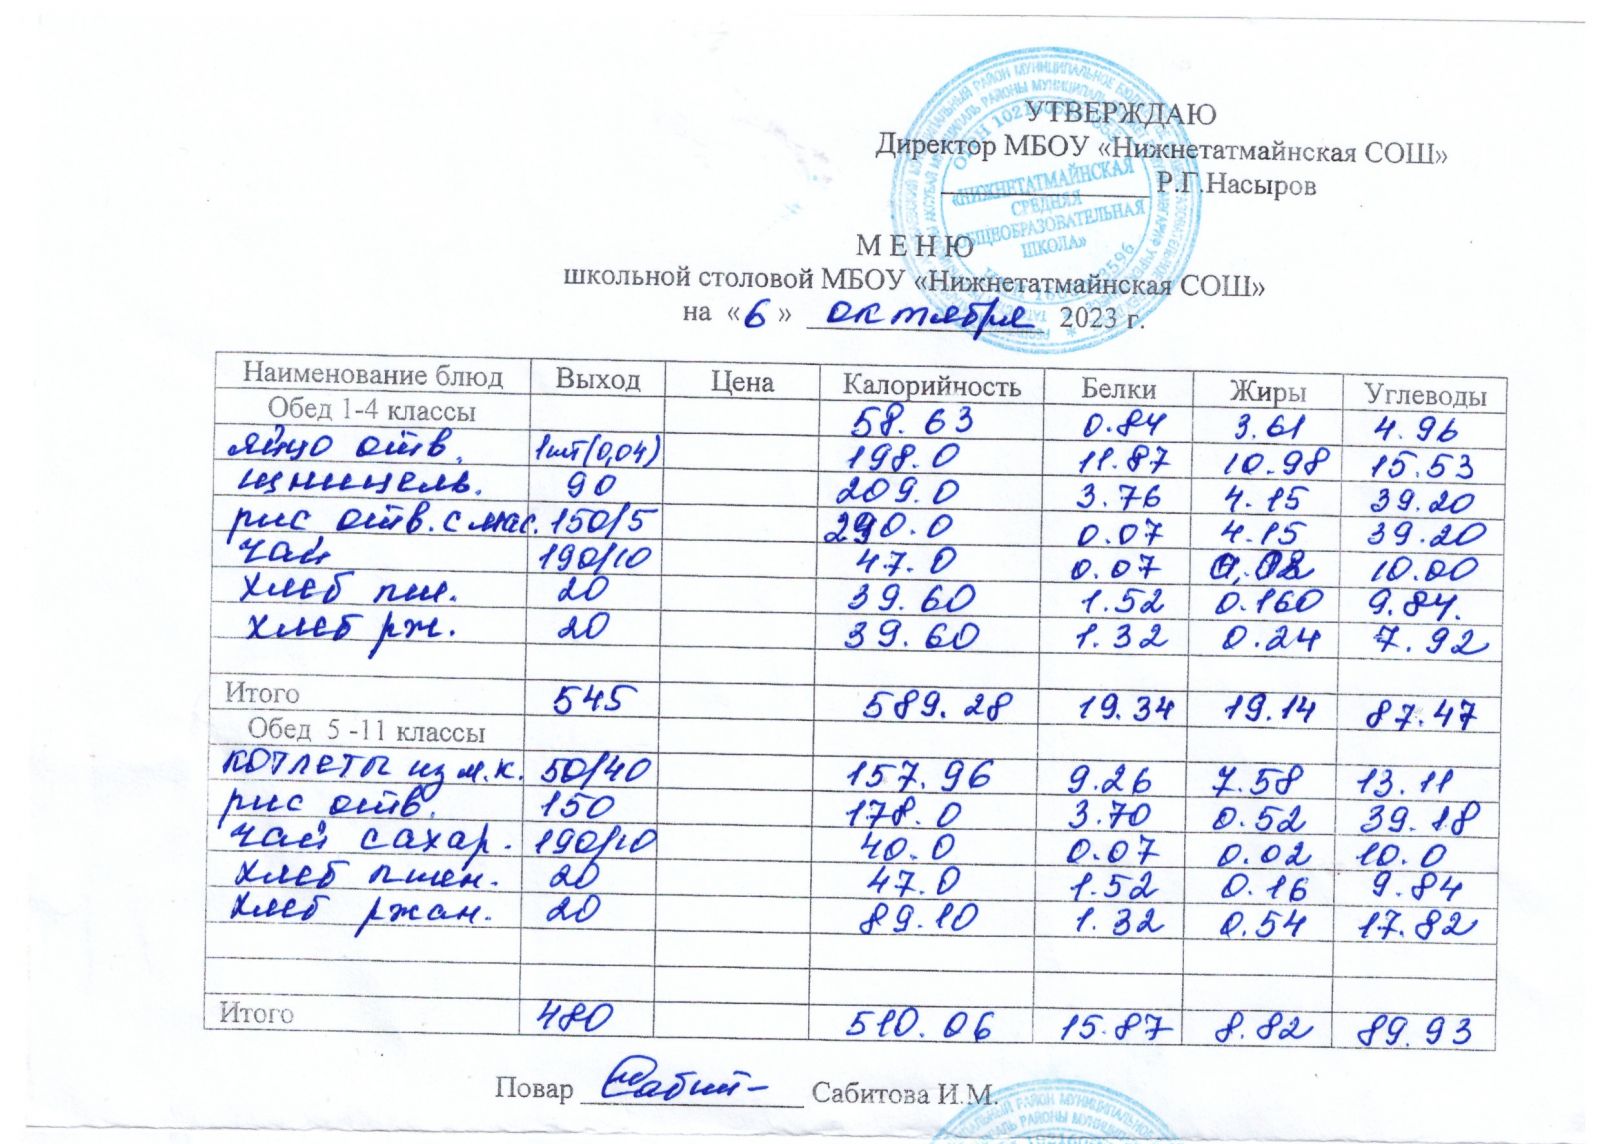 УТВЕРЖДАЮ
Директор МБОУ «Нижнетатмайнская СОШ»
Р.Г.Насыров
«НИЖНЕТАТМАЙНСКАЯ
СРЕДНЯЯ
ОБЩЕОБРАЗОВАТЕЛЬНАЯ
ШКОЛА»
М Е Н Ю
школьной столовой МБОУ «Нижнетатмайнская СОШ»
на «6» октября 2023 г.
Наименование блюд Выход Цена Калорийность Белки Жиры Углеводы
Обед 1-4 классы 58.63 0.84 3.61 4.96
яйцо отв. 1шт(0,04) 198.0 11.87 10.98 15.53
щницель. 90 209.0 3.76 4.15 39.20
рис отв. с мас. 150/5 290.0 0.07 4.15 39.20
чай 190/10 47.0 0.07 0.02 10.00
хлеб пш. 20 39.60 1.52 0.160 9.84.
хлеб рж. 20 39.60 1.32 0.24 7.92
Итого 545 589.28 19.34 19.14 87.47
Обед 5 -11 классы
котлеты из м.к. 50/40 157.96 9.26 7.58 13.11
рис отв. 150 178.0 3.70 0.52 39.18
чай сахар. 190/10 40.0 0.07 0.02 10.0
хлеб пшен. 20 47.0 1.52 0.16 9.84
хлеб ржан. 20 89.10 1.32 0.54 17.82
Итого 480 510.06 15.87 8.82 89.93
Повар Сабит Сабитова И.М.